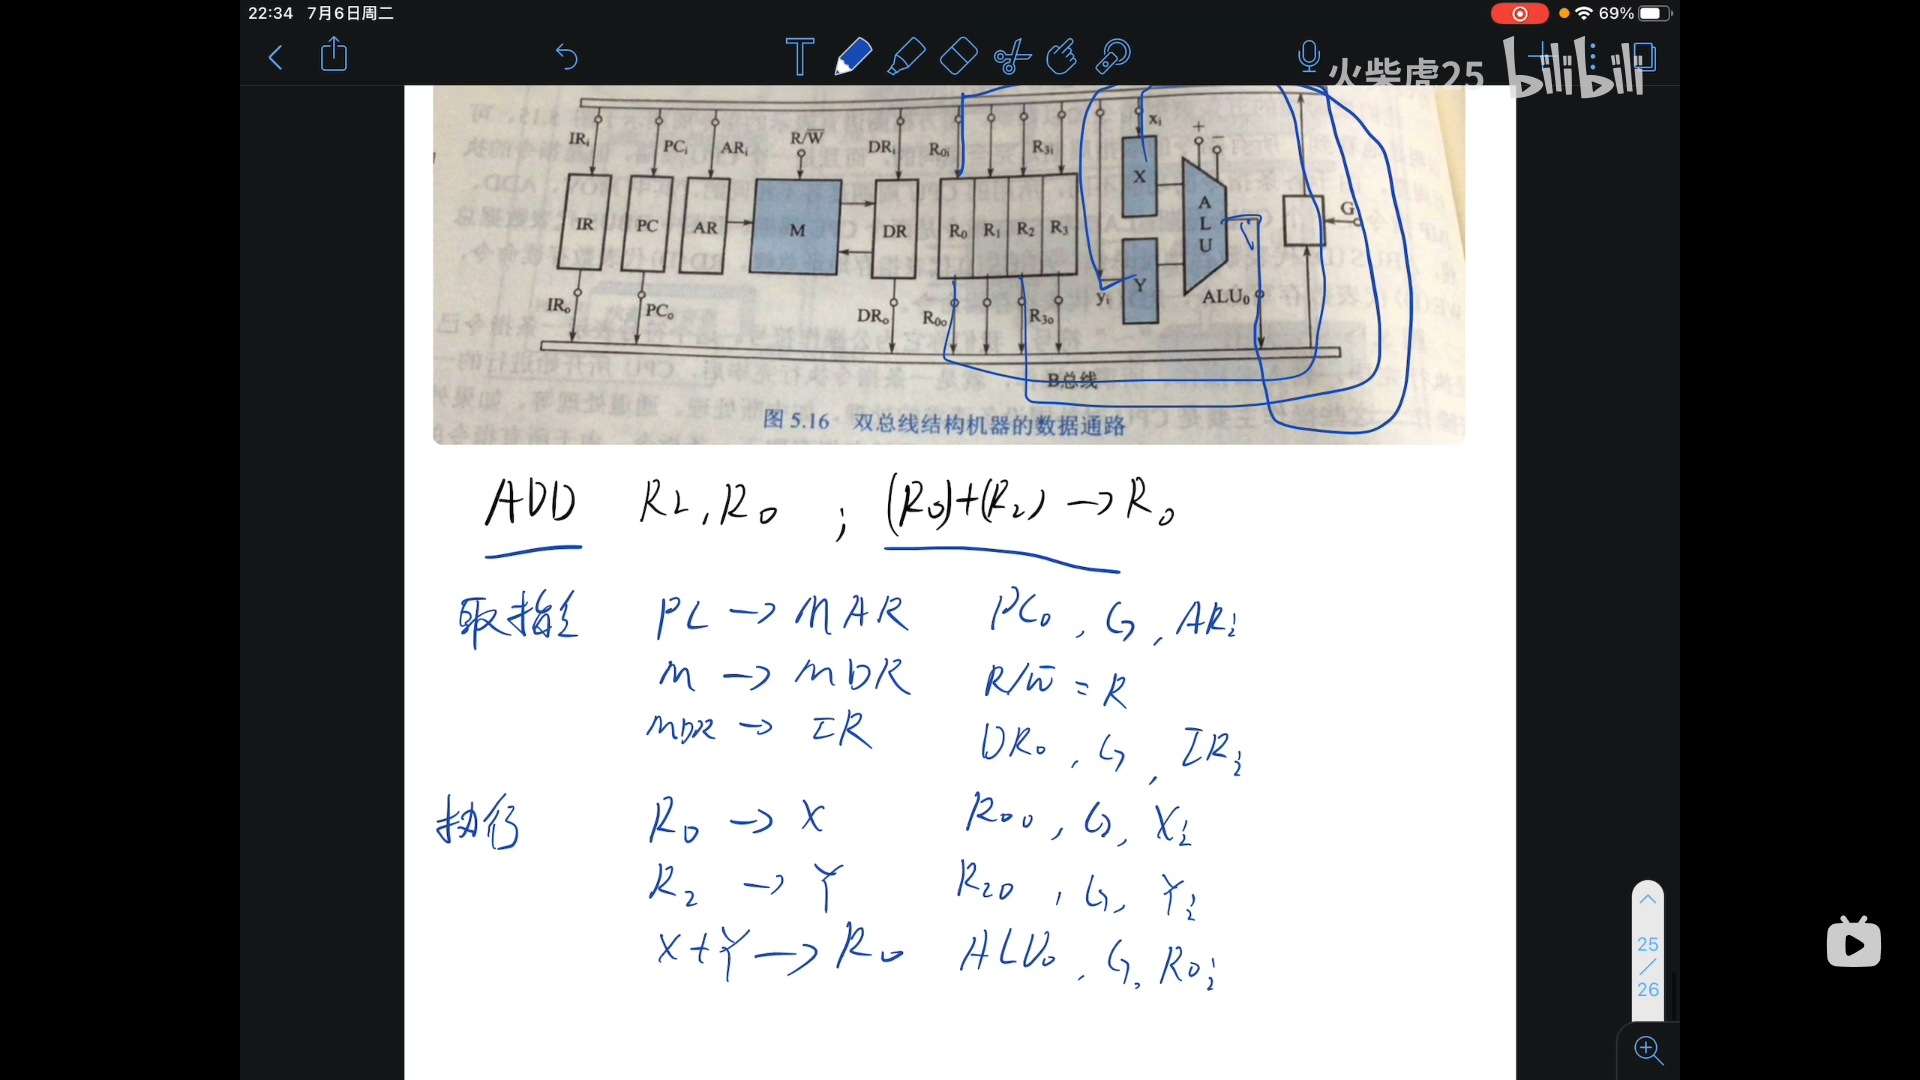 22:34 7月6日周二
69%
火柴虎25 bilibili
IRᵢ PCᵢ ARᵢ R/W̅ DRᵢ R₀ᵢ R₃ᵢ xᵢ + −
IR PC AR M DR R₀ R₁ R₂ R₃ X Y ALU G
IRₒ PCₒ DRₒ R₀ₒ R₃ₒ yᵢ ALU₀
B总线
图 5.16 双总线结构机器的数据通路
ADD R2,R0 ; (R0)+(R2) → R0
取指 PC → MAR PC₀ , G , ARᵢ
M → MDR R/W̅ = R
MDR → IR DR₀ , G , IRᵢ
执行 R₀ → X R₀₀ , G, Xᵢ
R₂ → Y R₂₀ , G, Yᵢ
X+Y → R₀ ALU₀ , G, R₀ᵢ
25
/
26